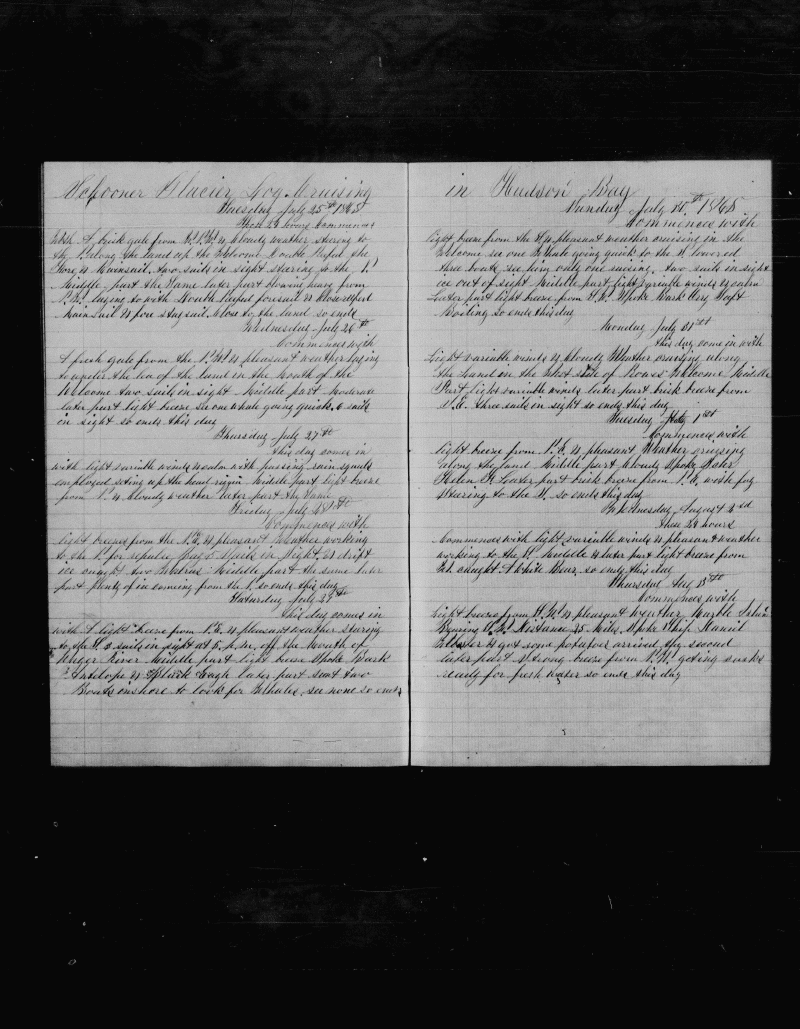 Schooner Glacier Log Cruising
Tuesday July 25th 1865
These 24 hours Commences
with A brisk gale from N. N. W. & Cloudy weather staring to
the along the land up the Welcome Mouth Reefed the
Fore & Mainsail two sails in sight staring to the
Middle part the Same later part blowing heavy from
N.W. laying to with Double Reefed foresail & Close reefed
Main sail & fore stay sail Close to the land so ends
Wednesday July 26th
Commences with
A fresh gale from the N.W. & pleasant weather laying
to under the lea of the land in the Mouth of the
Welcome two sails in sight Middle part Moderate
later part light breeze see one whale going quick 6 sails
in sight so ends this day
Thursday July 27th
this day comes in
with light variable winds & calm with passing rain squals
employed seting up the head rigin Middle part light breeze
from N. & Cloudy weather later part the Same
Friday July 28th
Commences with
light breezes from the N.E. & pleasant Weather working
to the N. for Repulse Bay 5 Sails in Sight & drift
ice caught two Walrus Middle part the same later
part plenty of ice coming from the N. so ends this day
Saturday July 29th
this day comes in
with A light breeze from N.E. & pleasant weather staring
to the S. 3 sails in sight at 5 p.m. off the Mouth of
Wager River Middle part light breeze Spoke Bark
Antelope & Black Eagle later part sent two
Boats onshore to look for Whales, see none so ends
in Hudson Bay
Sunday July 30th 1865
Commences with
light breeze from the & pleasant weather cruising in the
Welcome see one Whale going quick to the N lowered
three boats see him only one rising. two sails in sight
ice out of sight Middle part light variable winds & calm
Later part light breeze from S.W. Spoke Bark Ocry Taft
Boiling so ends this day
Monday July 31st
this day come in with
Light variable winds & Cloudy Weather cruising along
the Land on the West side of Rowes Welcome Middle
Part light variable winds later part brisk breeze from
S.E. three sails in sight so ends this day
Tuesday 1st
Commences with
light breeze from N.E. & pleasant Weather cruysing
along the land Middle part Cloudy Spoke Ester
Helen F Later part brisk breeze from N.E. with fog
Staring to the W. so ends this day
Wednesday August 2nd
these 24 hours
Commences with light variable winds & pleasant weather
working to the S. Middle & later part light breeze from
W. caught A White Bear so ends this day
Thursday Aug 3rd
Commences with
Light breeze from S.W. & pleasant weather Marble Island
Bearing S.W. Distance 25 Miles Spoke Ship Daniel
Webster & got some potatoes arrived the second
later part Strong breeze from N.W. geting casks
ready for fresh water so ends this day